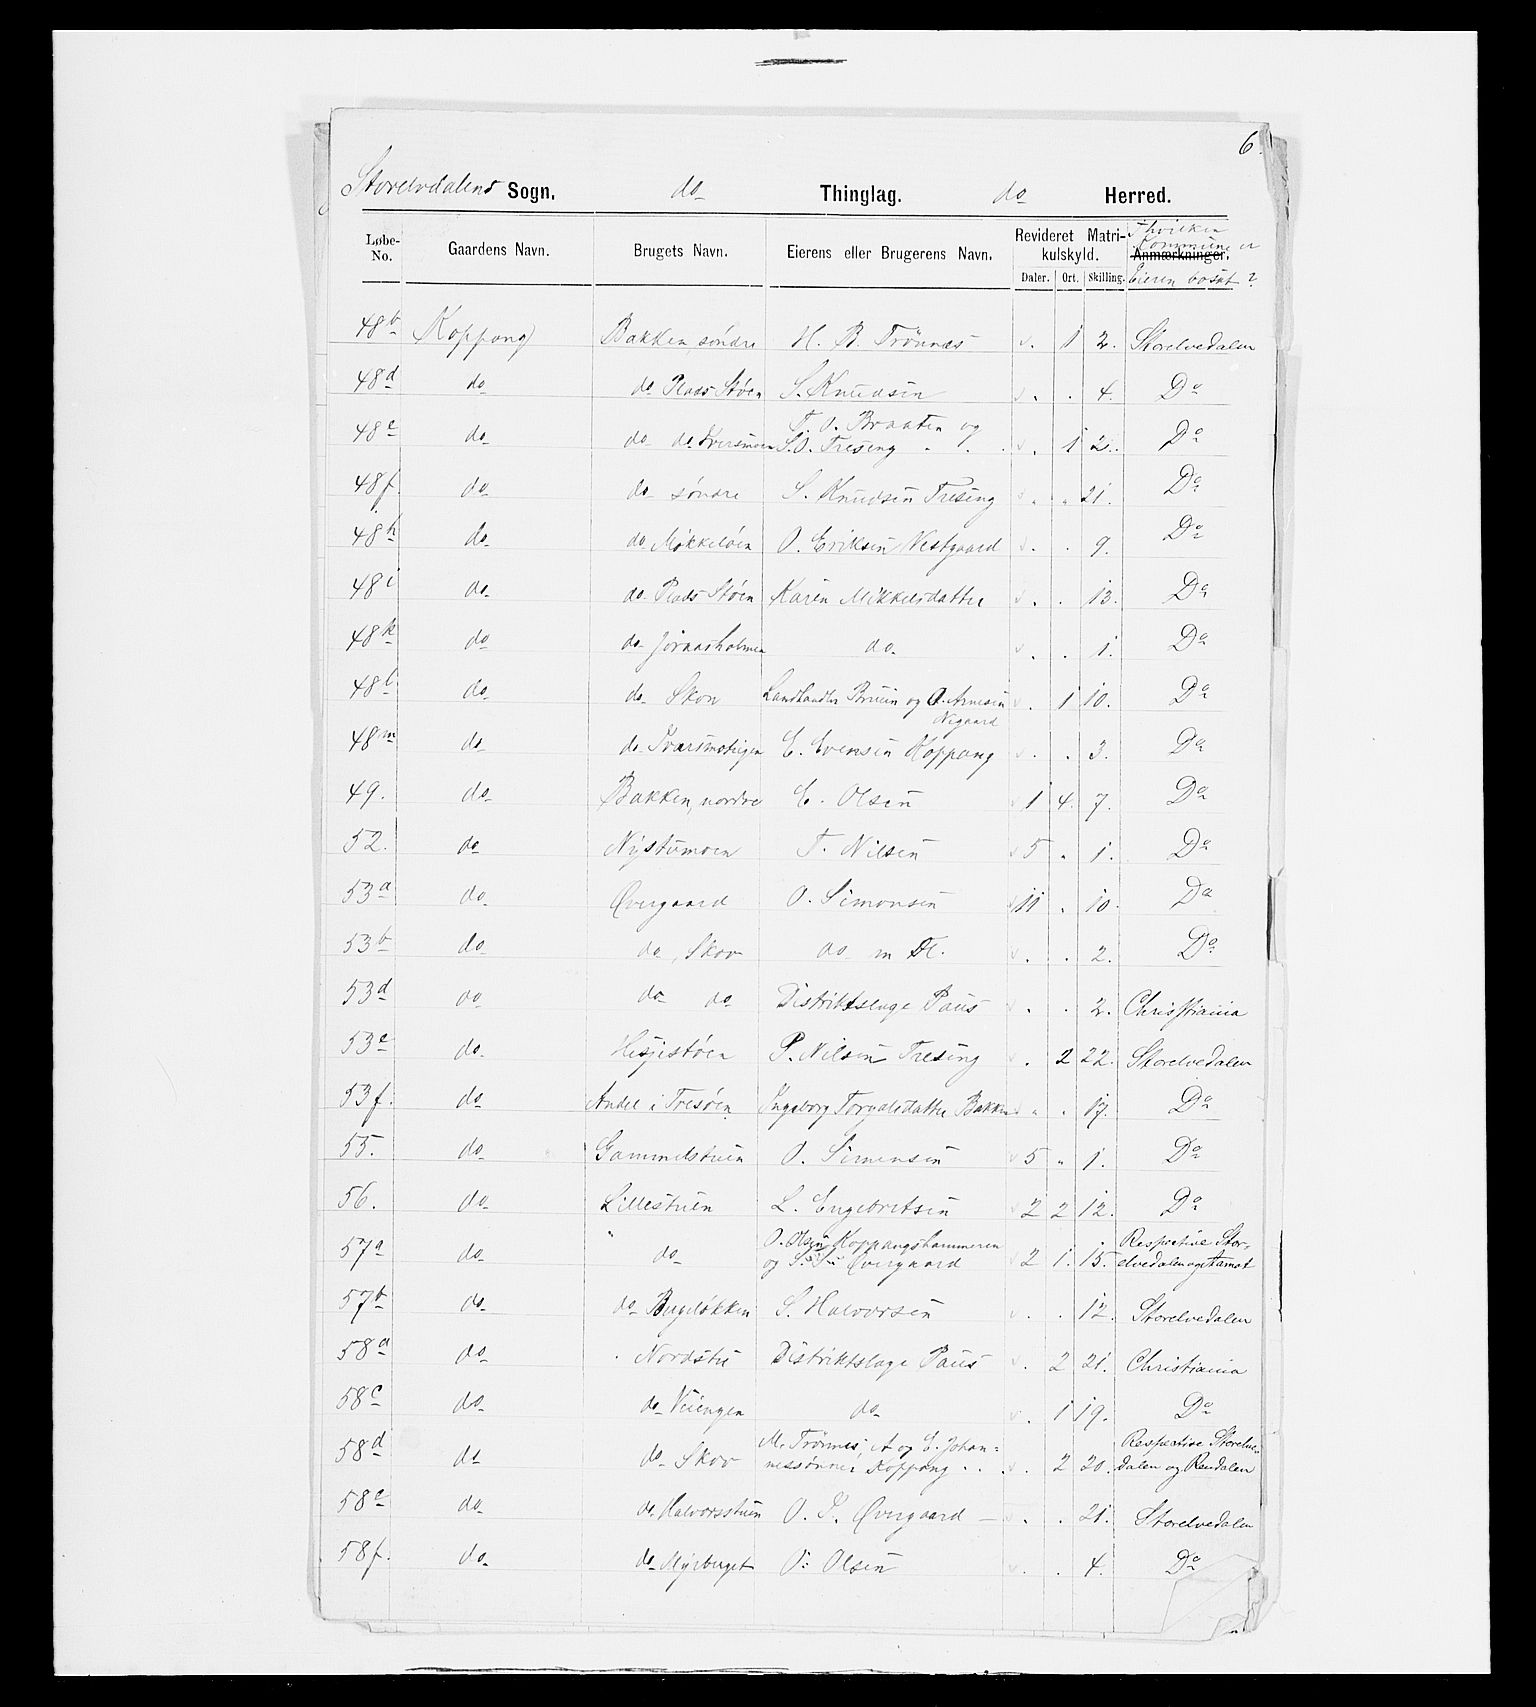 6.
Storelvdalens Sogn. do Thinglag. do Herred.
Løbe-No. Gaardens Navn. Brugets Navn. Eierens eller Brugerens Navn. Revideret Matrikulskyld. Daler. Ort. Skilling. Anmærkninger. I hvilken Kommune er Eieren bosat?
48b Koppang Bakken, søndre H. B. Trønnæs . 1 2. Storelvedalen
48d do do Plads Støen S. Knudsen . . 4. Do
48e do do do Iversmoen T. O. Braaten og S. O. Treseng . 1 2. Do
48f. do do søndre S. Knudsen Treseng " " 21. Do
48h do do Mökkeløen O. Eriksen Vestgaard . . 9. Do
48i do do Plads Støen Karen Mikkelsdatter . . 13. Do
48k do do Jonasholmen do . . 1. Do
48l do do Skov Landhandler Bruun og O. Arnesen Nigaard . 1 10. Do
48m do do Ivarsmoteigen E. Evensen Koppang . . 3. Do
49. do Bakken, nordre E. Olsen 1 4. 7. Do
52. do Nystumoen T. Nilsen 5 " 1. Do
53a do Øvergaard O. Simonsen 11 . 10. Do
53b do do, Skov do m Fl. . . 2. Do
53d do do do Distriktslæge Paus . . 2. Christiania
53e do Hesjestøen P. Nilsen Treseng . 2 22. Storelvedalen
53f. do Andel i Tresøen Ingeborg Torgalsdatter Bakken " . 17. Do
55. do Gammelstuen O. Simensen 5 " 1. Do
56. do Lillestuen L. Engebretsen 2 2 12. Do
57a do do O. Olsen Koppangshammeren og S. Øvergaard 2 1. 15. Respective Storelvedalen og Aamot
57b do do Bygeløkken S. Halvorsen . . 12. Storelvedalen
58a do Nordstu Distriktslæge Paus . 2 21. Christiania
58c do do Veiengen do . 1 19. Do
58d do do Skov M. Trønnes, A og E. Johannessønner Koppang . 2 20. Respective Storelvedalen og Rendalen
58e do do Halvorsstuen O. I. Øvergaard — . . 21. Storelvedalen
58f. do do Myrberget O: Olsen . . 4. Do